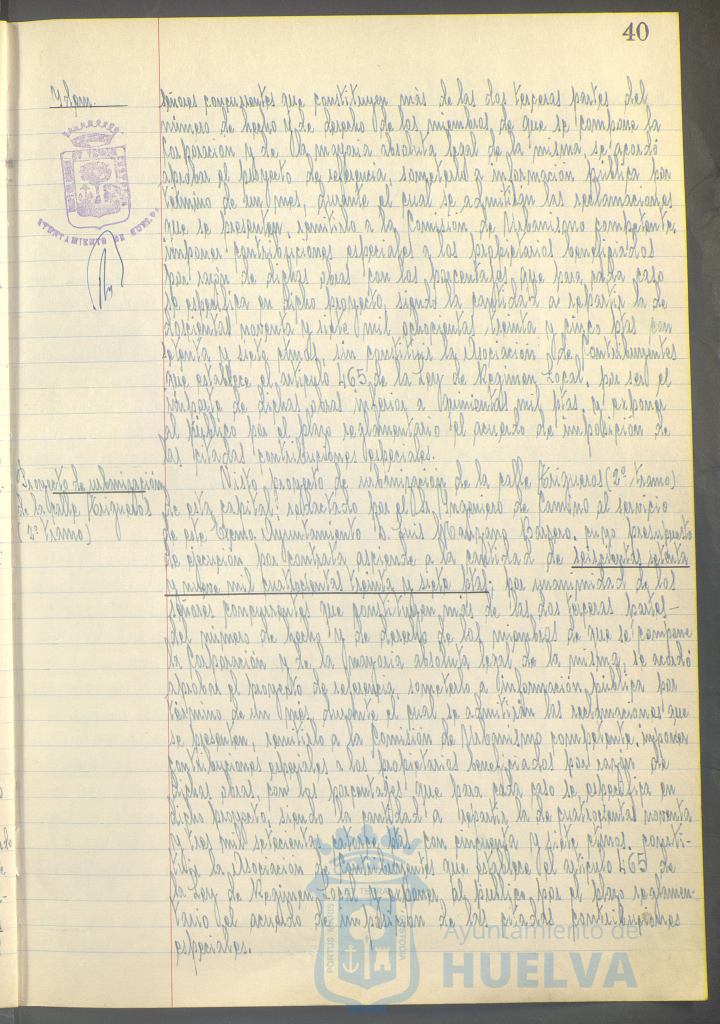 40
Idem.
señores concurrentes que constituyen más de las dos terceras partes del
número de hecho y de derecho de los miembros de que se compone la
Corporación y de la mayoria absoluta legal de la misma se acordó
aprobar el proyecto de referencia, someterlo a información pública por
término de un mes, durante el cual se admitirán las reclamaciones
que se presenten, remitirlo a la Comisión de Urbanismo competente,
imponer contribuciones especiales a los propietarios beneficiados
por razón de dichas obras con los porcentajes que para cada caso
se especifica en dicho proyecto, siendo la cantidad a repartir la de
doscientas noventa y siete mil ochocientas treinta y cinco ptas con
setenta y siete ctmos, sin constituir la Asociación de Contribuyentes
que establece el artículo 465 de la Ley de Regimen Local, por ser el
importe de dichas obras inferior a quinientas mil ptas, y exponer
al público por el plazo reglamentario el acuerdo de imposición de
las citadas contribuciones especiales.
Proyecto de urbanización
de la calle Trigueros
(2º tramo)
Visto proyecto de urbanización de la calle Trigueros (2º tramo)
de esta capital redactado por el Sr. Ingeniero de Camino al servicio
de este Excmo Ayuntamiento D. Luis Manzano Barrero, cuyo presupuesto
de ejecución por contrata asciende a la cantidad de seiscientas setenta
y nueve mil cuatrocientas treinta y siete ptas; por unanimidad de los
señores concurrentes que constituyen más de las dos terceras partes-
del número de hecho y de derecho de los miembros de que se compone
la Corporación y de la mayoria absoluta legal de la misma, se acordó
aprobar el proyecto de referencia, someterlo a información pública por
término de un mes, durante el cual se admitirán las reclamaciones que
se presenten, remitirlo a la Comisión de Urbanismo competente, imponer
contribuciones especiales a los propietarios beneficiados por razón de
dichas obras, con los porcentajes que para cada caso se especifica en
dicho proyecto, siendo la cantidad a repartir la de cuatrocientas noventa
y tres mil setecientas catorce ptas con cincuenta y siete ctmos. consti-
tuir la Asociación de Contribuyentes que establece el artículo 465 de
la Ley de Regimen Local y exponer al público por el plazo reglamen-
tario el acuerdo de imposición de las citadas contribuciones
especiales.
AYUNTAMIENTO DE HUELVA
PORTUS MARIS ET TERRAE CUSTODIA
Ayuntamiento de
HUELVA